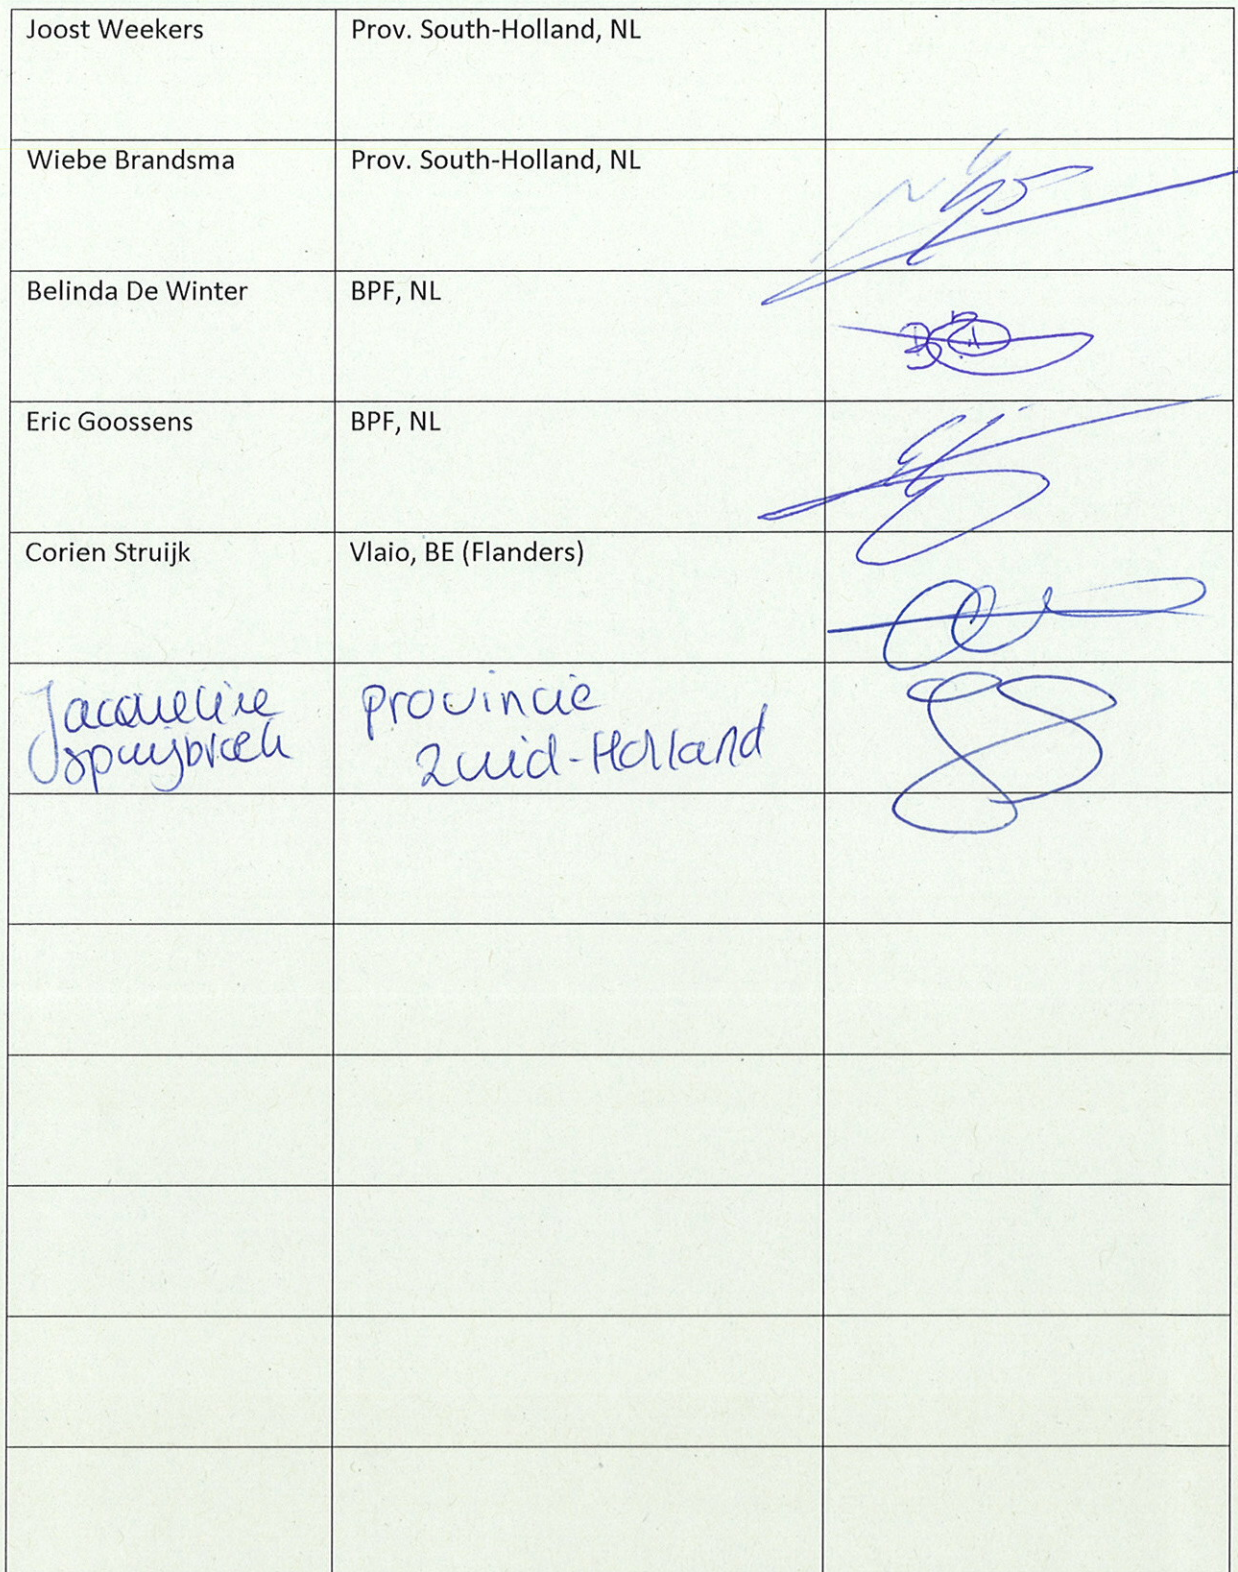 Joost Weekers Prov. South-Holland, NL
Wiebe Brandsma Prov. South-Holland, NL
Belinda De Winter BPF, NL
Eric Goossens BPF, NL
Corien Struijk Vlaio, BE (Flanders)
Jacqueline provincie
Spuijbroek Zuid-Holland